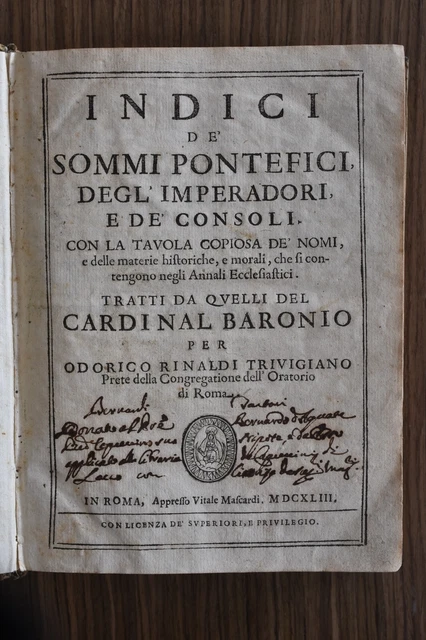 INDICI
DE'
SOMMI PONTEFICI,
DEGL' IMPERADORI,
E DE' CONSOLI.
CON LA TAVOLA COPIOSA DE' NOMI,
e delle materie historiche, e morali, che si con-
tengono negli Annali Ecclesiastici.
TRATTI DA QVELLI DEL
CARDINAL BARONIO
PER
ODORICO RINALDI TRIVIGIANO
Prete della Congregatione dell' Oratorio
di Roma.
IN ROMA, Appresso Vitale Mascardi. MDCXLIII.
CON LICENZA DE' SVPERIORI, E PRIVILEGIO.